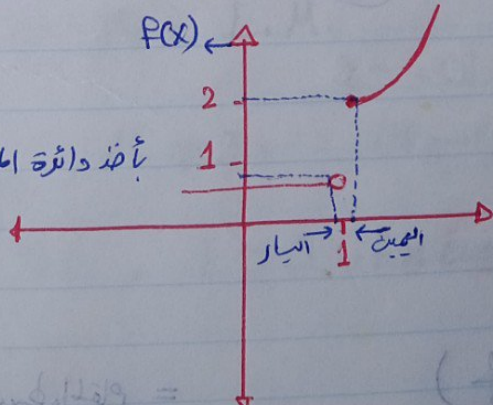 f(x)
2
بأخذ دائرة
1
اليسار
1
اليمين